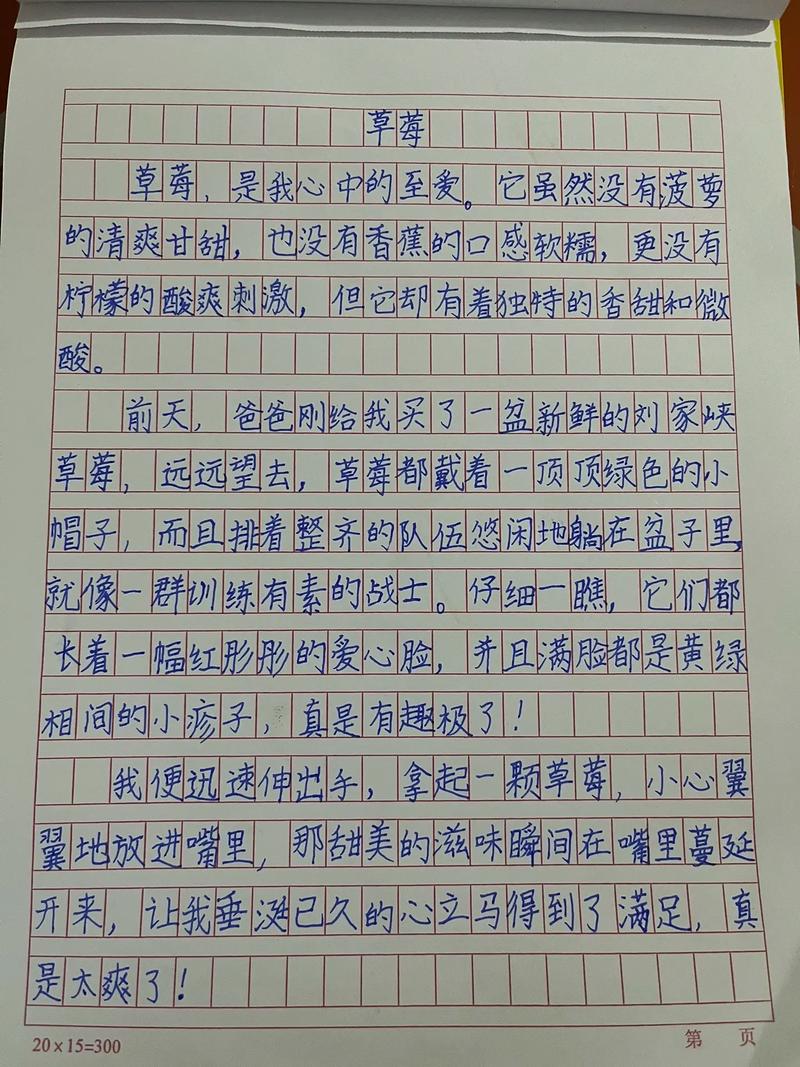 草莓
草莓，是我心中的至爱。它虽然没有菠萝
的清爽甘甜，也没有香蕉的口感软糯，更没有
柠檬的酸爽刺激，但它却有着独特的香甜和微
酸。
前天，爸爸刚给我买了一盆新鲜的刘家峡
草莓，远远望去，草莓都戴着一顶顶绿色的小
帽子，而且排着整齐的队伍悠闲地躺在盆子里，
就像一群训练有素的战士。仔细一瞧，它们都
长着一幅红彤彤的爱心脸，并且满脸都是黄绿
相间的小疹子，真是有趣极了！
我便迅速伸出手，拿起一颗草莓，小心翼
翼地放进嘴里，那甜美的滋味瞬间在嘴里蔓延
开来，让我垂涎已久的心立马得到了满足，真
是太爽了！
20×15=300 第 页